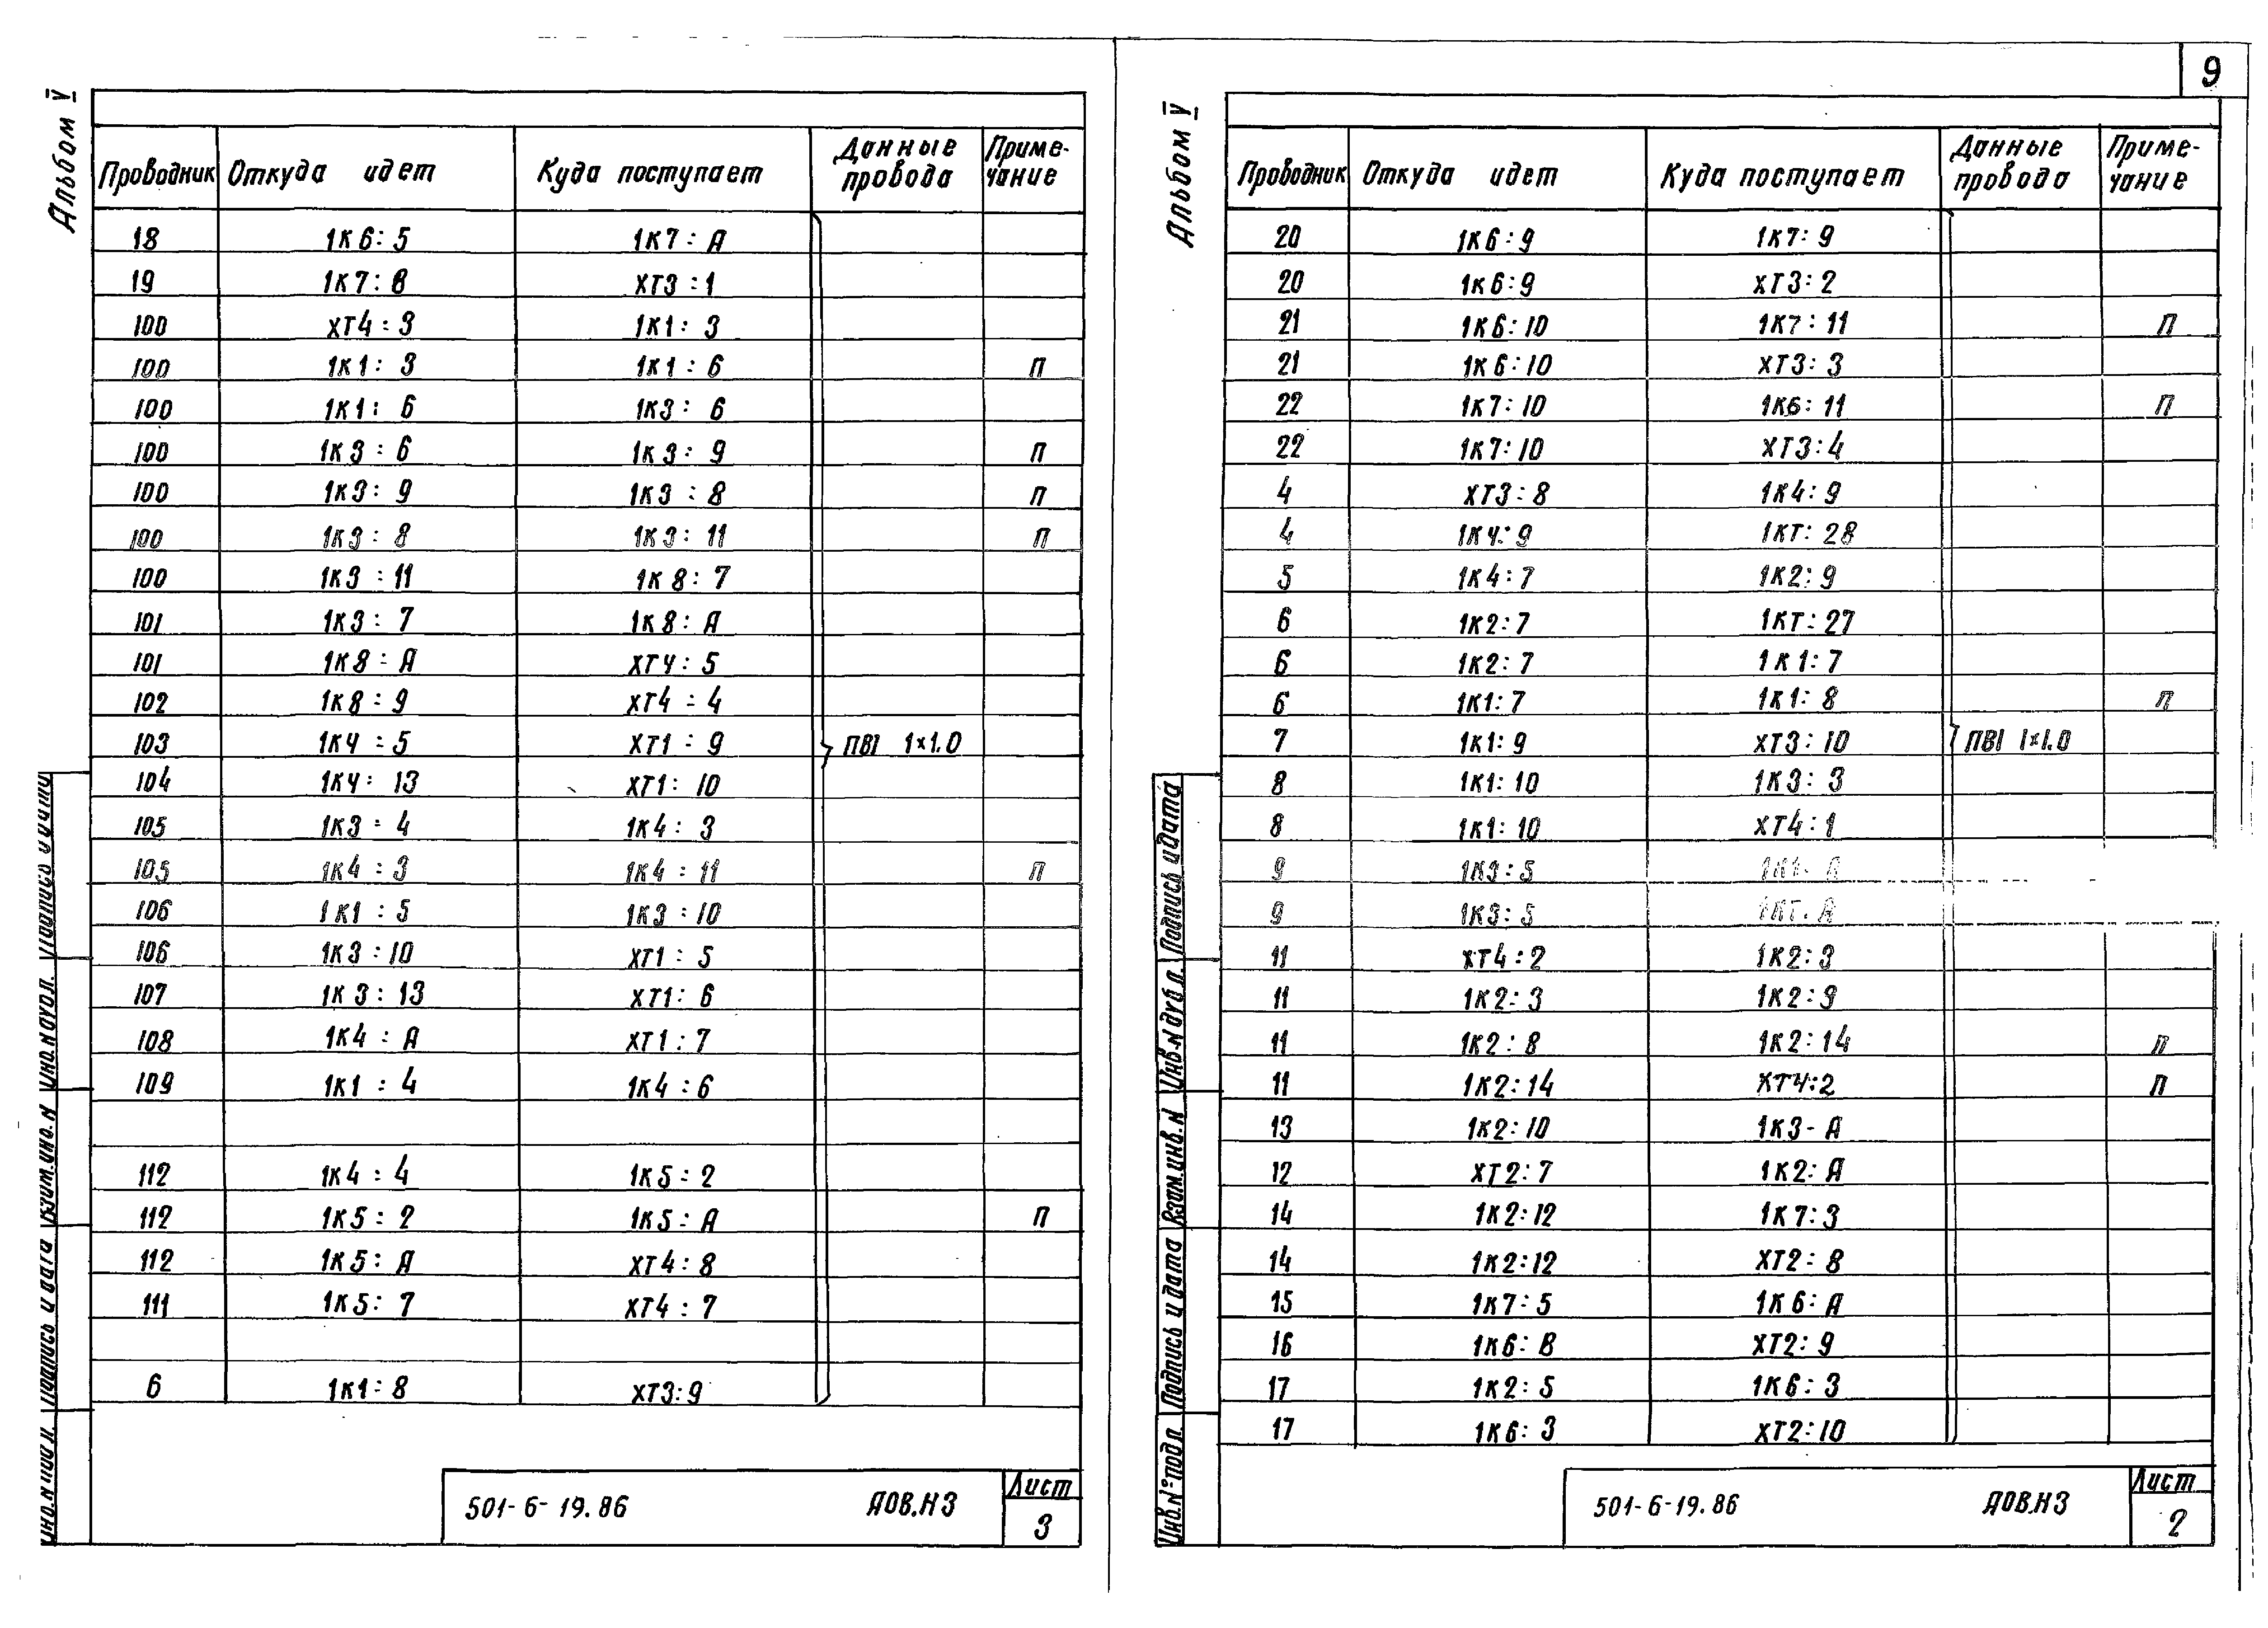 9
Альбом V
Проводник Откуда идет Куда поступает Данные провода Приме-чание
18 1К6:5 1К7:А
19 1К7:В ХТ3:1
100 ХТ4:3 1К1:3
100 1К1:3 1К1:6 П
100 1К1:6 1К3:6
100 1К3:6 1К3:9 П
100 1К3:9 1К3:8 П
100 1К3:8 1К3:11 П
100 1К3:11 1К8:7
101 1К3:7 1К8:А
101 1К8:А ХТ4:5
102 1К8:9 ХТ4:4
103 1К4:5 ХТ1:9 ПВ1 1×1.0
104 1К4:13 ХТ1:10
105 1К3:4 1К4:3
105 1К4:3 1К4:11 П
106 1К1:5 1К3:10
106 1К3:10 ХТ1:5
107 1К3:13 ХТ1:6
108 1К4:А ХТ1:7
109 1К1:4 1К4:6
112 1К4:4 1К5:2
112 1К5:2 1К5:А П
112 1К5:А ХТ4:8
111 1К5:7 ХТ4:7
6 1К1:8 ХТ3:9
501-6-19.86 АОВ.Н3 Лист 3
Инв.N подл. Подпись и дата Взам.инв.N Инв.N дубл. Подпись и дата
Альбом V
Проводник Откуда идет Куда поступает Данные провода Приме-чание
20 1К6:9 1К7:9
20 1К6:9 ХТ3:2
21 1К6:10 1К7:11 П
21 1К6:10 ХТ3:3
22 1К7:10 1К6:11 П
22 1К7:10 ХТ3:4
4 ХТ3:8 1К4:9
4 1К4:9 1КТ:28
5 1К4:7 1К2:9
6 1К2:7 1КТ:27
6 1К2:7 1К1:7
6 1К1:7 1К1:8 П
7 1К1:9 ХТ3:10 ПВ1 1×1.0
8 1К1:10 1К3:3
8 1К1:10 ХТ4:1
9 1К3:5
9 1К3:5
11 ХТ4:2 1К2:3
11 1К2:3 1К2:9
11 1К2:8 1К2:14 П
11 1К2:14 ХТ4:2 П
13 1К2:10 1К3-А
12 ХТ2:7 1К2:А
14 1К2:12 1К7:3
14 1К2:12 ХТ2:8
15 1К7:5 1К6:А
16 1К6:В ХТ2:9
17 1К2:5 1К6:3
17 1К6:3 ХТ2:10
501-6-19.86 АОВ.Н3 Лист 2
Инв.N° подл. Подпись и дата Взам.инв.N Инв.N дубл. Подпись и дата